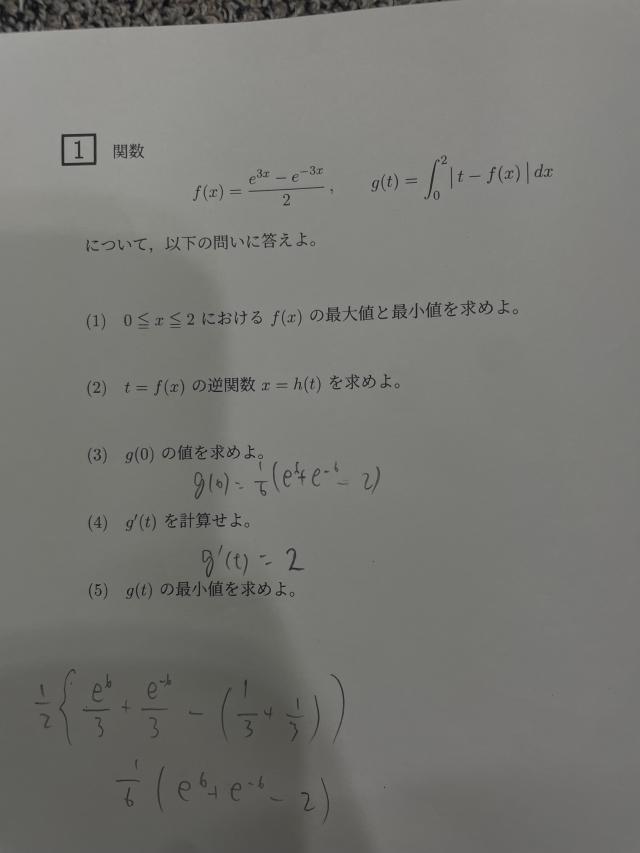 1 関数
f(x) = (e^{3x} − e^{−3x})/2 , g(t) = ∫_0^2 | t − f(x) | dx
について，以下の問いに答えよ。
(1) 0 ≦ x ≦ 2 における f(x) の最大値と最小値を求めよ。
(2) t = f(x) の逆関数 x = h(t) を求めよ。
(3) g(0) の値を求めよ。
g(0) = 1/6 (e^6 + e^{-6} − 2)
(4) g′(t) を計算せよ。
g′(t) = 2
(5) g(t) の最小値を求めよ。
1/2 { e^6/3 + e^{-6}/3 − (1/3 + 1/3) )
1/6 ( e^6 + e^{-6} − 2 )